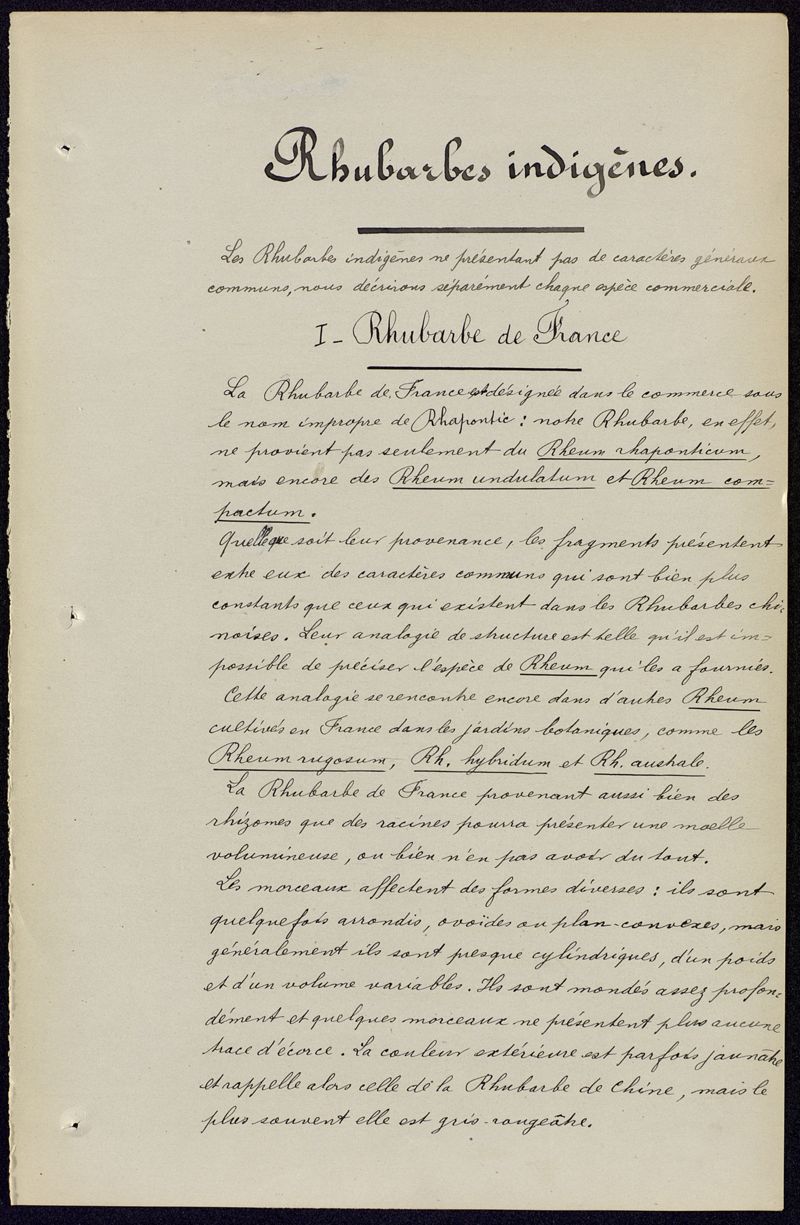 Rhubarbes indigènes.
Les Rhubarbes indigènes ne présentant pas de caractères généraux
communs, nous décrirons séparément chaque espèce commerciale.
I - Rhubarbe de France
La Rhubarbe de France est désignée dans le commerce sous
le nom impropre de Rhapontic : notre Rhubarbe, en effet,
ne provient pas seulement du Rheum rhaponticum,
mais encore des Rheum undulatum et Rheum com=
pactum.
Quelle que soit leur provenance, les fragments présentent
entre eux des caractères communs qui sont bien plus
constants que ceux qui existent dans les Rhubarbes chi-
noises. Leur analogie de structure est telle qu'il est im=
possible de préciser l'espèce de Rheum qui les a fournies.
Cette analogie se rencontre encore dans d'autres Rheum
cultivés en France dans les jardins botaniques, comme les
Rheum rugosum, Rh. hybridum et Rh. australe.
La Rhubarbe de France provenant aussi bien des
rhizomes que des racines pourra présenter une moelle
volumineuse, ou bien n'en pas avoir du tout.
Les morceaux affectent des formes diverses : ils sont
quelquefois arrondis, ovoïdes ou plan-convexes, mais
généralement ils sont presque cylindriques, d'un poids
et d'un volume variables. Ils sont mondés assez profon=
dément et quelques morceaux ne présentent plus aucune
trace d'écorce. La couleur extérieure est parfois jaunâtre
et rappelle alors celle de la Rhubarbe de Chine, mais le
plus souvent elle est gris-rougeâtre.